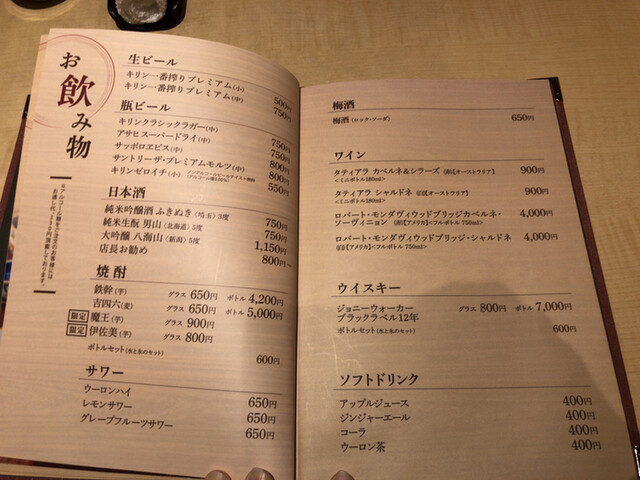 お飲み物
生ビール
キリン一番搾りプレミアム(小) 500円
キリン一番搾りプレミアム(中) 750円
瓶ビール
キリンクラシックラガー(中) 750円
アサヒスーパードライ(中) 750円
サッポロヱビス(中) 800円
サントリーザ・プレミアムモルツ(中) 800円
キリンゼロイチ(小) 550円
日本酒
純米吟醸酒 ふきぬき〈埼玉〉3度 750円
純米生酛 男山〈北海道〉5度 750円
大吟醸 八海山〈新潟〉5度 1,150円
店長お勧め 800円～
焼酎
鉄幹(芋) グラス 650円 ボトル 4,200円
吉四六(麦) グラス 650円 ボトル 5,000円
限定 魔王(芋) グラス 900円
限定 伊佐美(芋) グラス 800円
ボトルセット(水と氷のセット) 600円
サワー
ウーロンハイ 650円
レモンサワー 650円
グレープフルーツサワー 650円
梅酒
梅酒(ロック・ソーダ) 650円
ワイン
タティアラ カベルネ&シラーズ (赤)【オーストラリア】 900円
<ミニボトル180ml>
タティアラ シャルドネ (白)【オーストラリア】 900円
<ミニボトル180ml>
ロバート・モンダヴィウッドブリッジカベルネ・ 4,000円
ソーヴィニヨン (赤)【アメリカ】<フルボトル 750ml>
ロバート・モンダヴィウッドブリッジ・シャルドネ 4,000円
(白)【アメリカ】<フルボトル 750ml>
ウイスキー
ジョニーウォーカー グラス 800円 ボトル 7,000円
ブラックラベル12年
ボトルセット(水と氷のセット) 600円
ソフトドリンク
アップルジュース 400円
ジンジャーエール 400円
コーラ 400円
ウーロン茶 400円